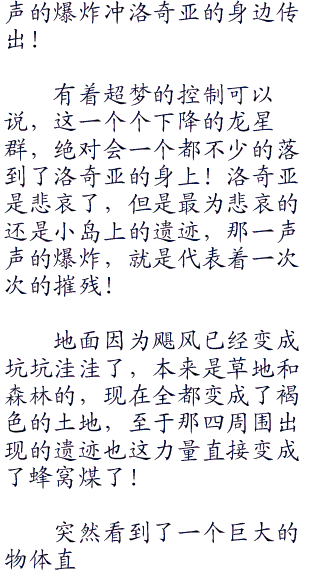 声的爆炸冲洛奇亚的身边传
出！
有着超梦的控制可以
说，这一个个下降的龙星
群，绝对会一个都不少的落
到了洛奇亚的身上！洛奇亚
是悲哀了，但是最为悲哀的
还是小岛上的遗迹，那一声
声的爆炸，就是代表着一次
次的摧残！
地面因为飓风已经变成
坑坑洼洼了，本来是草地和
森林的，现在全都变成了褐
色的土地，至于那四周围出
现的遗迹也这力量直接变成
了蜂窝煤了！
突然看到了一个巨大的
物体直